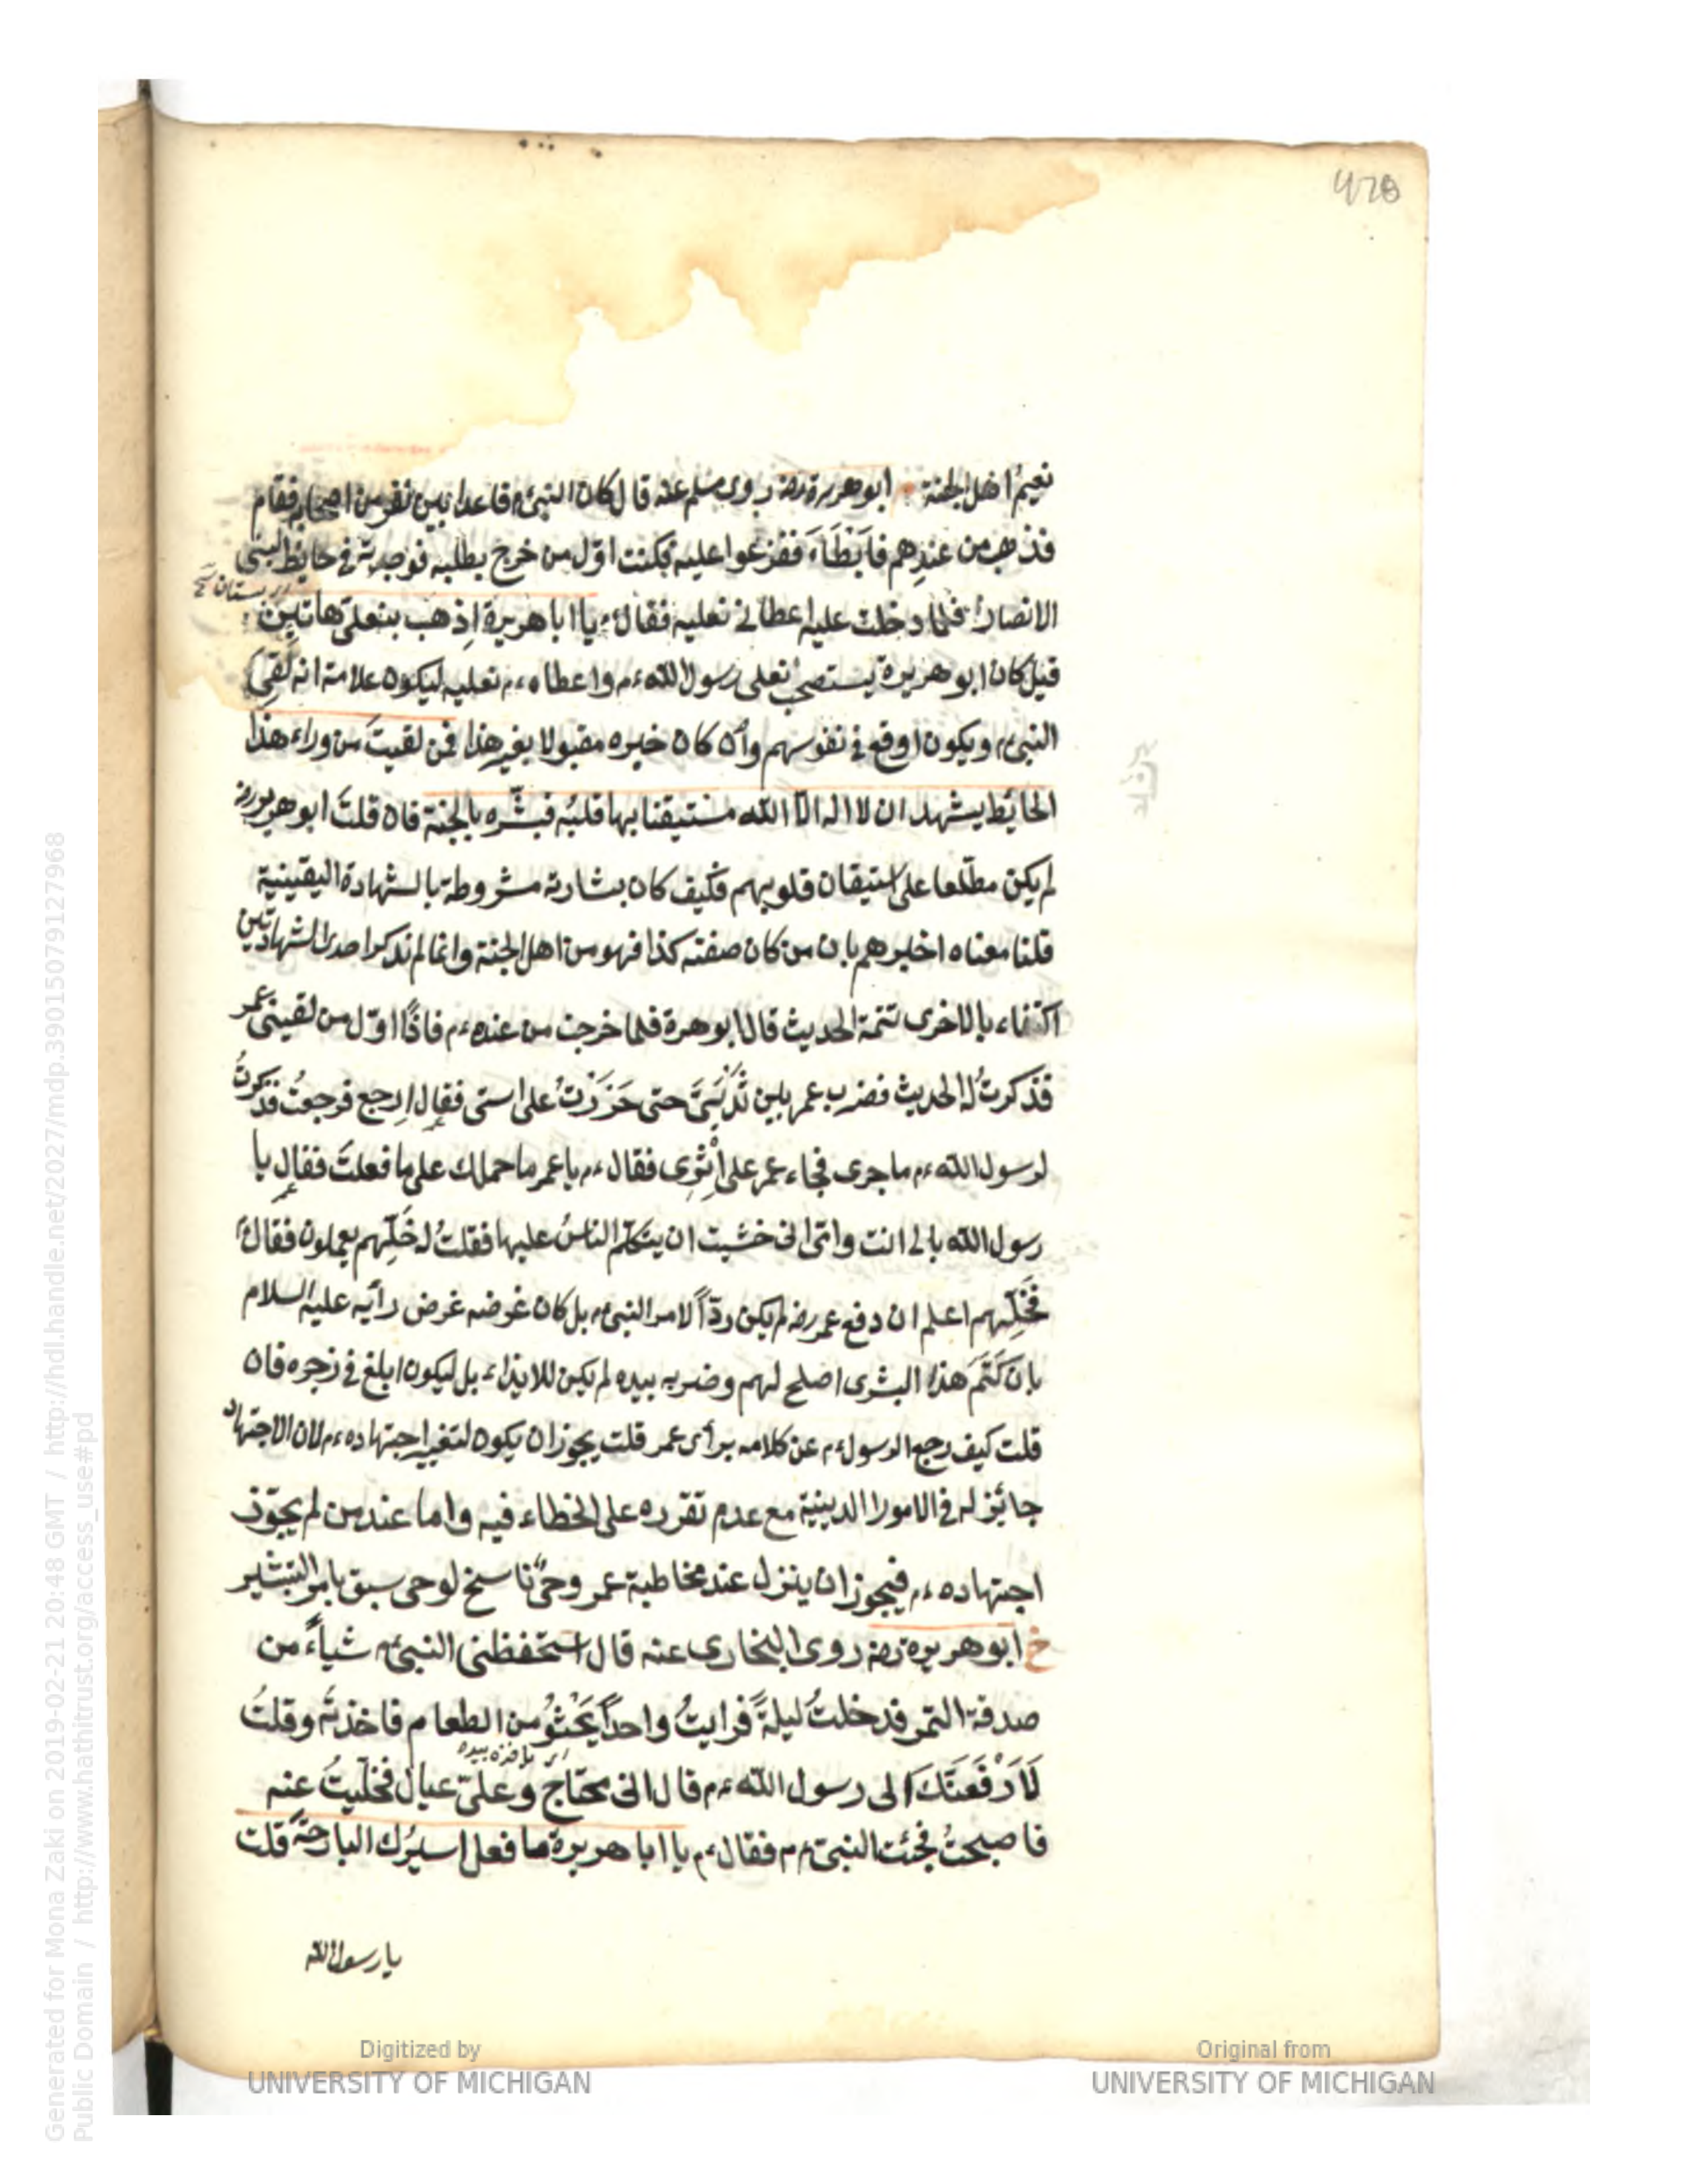 478
نعيمُ اهل الجنة ابو هريرة رضه روى مسلم عنه قال كان النبىء م قاعدا بين نفر من اصحابه فقام
فذهب من عندهم فاَبْطَاءَ ففزعوا عليه فكنت اوّل من خرج يطلبه فوجدته فى حائط لبنى
اى بستان
الانصار فلما دخلت عليه اعطانى نعليه فقال يا ابا هريرة اِذهب بنعلىّ هاتين
قيل كان ابو هريرة يستصحب نعلى رسول الله ءم واعطاه ءم نعليه ليكون علامة انه لَقِىَ
النبىء م ويكون اوقع فى نفوسهم وان كان خبره مقبولا بغير هذا فمن لقيتَ من وراء هذا
الحائط يشهد ان لا اله الّا الله مستيقنا بها قلبُه فبشّره بالجنة فان قلتَ ابو هريرة رضه
لم يكن مطّلعا على استيقان قلوبهم فكيف كان بشارته مشروطة بالشهادة اليقينية
قلنا معناه اخبرهم بان من كان صفته كذا فهو من اهل الجنة وانما لم تذكر احدى الشهادتين
اكتفاء بالاخرى تتمة الحديث قال ابو هرة فلما خرجت من عنده ءم فاذًا اوّل من لقينى عمر
فذكرتُ له الحديث فضرب عمر بين ثَدْيَىَّ حتى خَرَرْتُ على استى فقال اِرجع فرجعتُ فذكرتُ
لرسول الله ءم ما جرى فجاء عمر على اِثْرِى فقال ءم يا عمر ما حملك على ما فعلتَ فقال يا
عمر
رسول الله بابى انت وامّى انى خشيت ان يتكلّم الناسُ عليها فقلتُ له خَلِّهم يعملون فقال ءم
فَخَلِّهم اعلم ان دفع عمر رضه لم يكن ردّاً لامر النبىء م بل كان غرضه عرض رأيه عليه السلام
بانَ كَتْمَ هذا البشرى اصلح لهم وضربه بيده لم يكن للايذاء بل ليكون ابلغ فى زجره فان
قلت كيف رجع الرسول ءم عن كلامه برأى عمر قلت يجوز ان يكون لتغير اجتهاده ءم لان الاجتهاد
جائز له فى الامور الدينية مع عدم تقرره على الخطاء فيه واما عند من لم يجوّز
اجتهاده ءم فيجوز ان ينزل عند مخاطبة عمر وحىٌ ناسخ لوحى سبق بامر التبشير
خ ابو هريرة رضه روى البخارى عنه قال استحفظنى النبىء م شياءً من
صدقة التمر فدخلتُ ليلةً فرايتُ واحداً يَحْثُو من الطعام فاخذتُه وقلتُ
اى ياخذه بيده
لَاَرْفَعَنَّكَ الى رسول الله ءم قال انى محتاجٌ وعلىّ عيالٌ فخلّيتُ عنه
فاصبحتُ فجئت النبىّ ءم فقال ءم يا ابا هريرة ما فعل اسيرُك البارحةَ قلت
يا رسول الله
Digitized by
UNIVERSITY OF MICHIGAN
Original from
UNIVERSITY OF MICHIGAN
Generated for Mona Zaki on 2019-02-21 20:48 GMT / http://hdl.handle.net/2027/mdp.39015079127968
Public Domain / http://www.hathitrust.org/access_use#pd